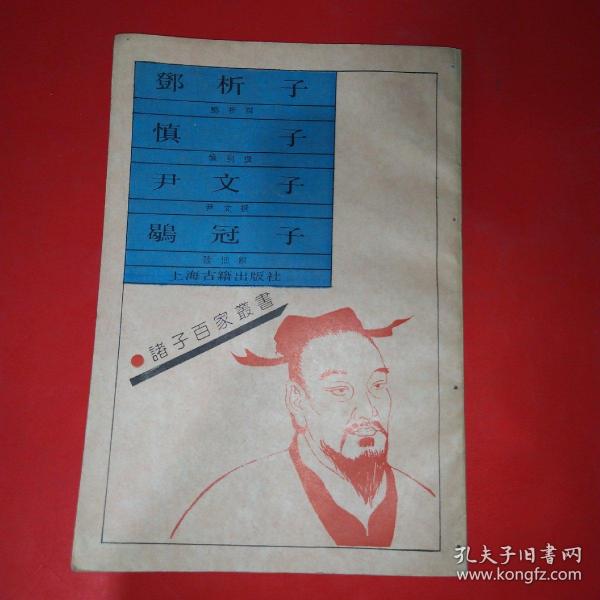 鄧析子
鄧析撰
慎子
慎到撰
尹文子
尹文撰
鶡冠子
陸佃解
上海古籍出版社
諸子百家叢書
孔夫子旧书网
www.kongfz.com